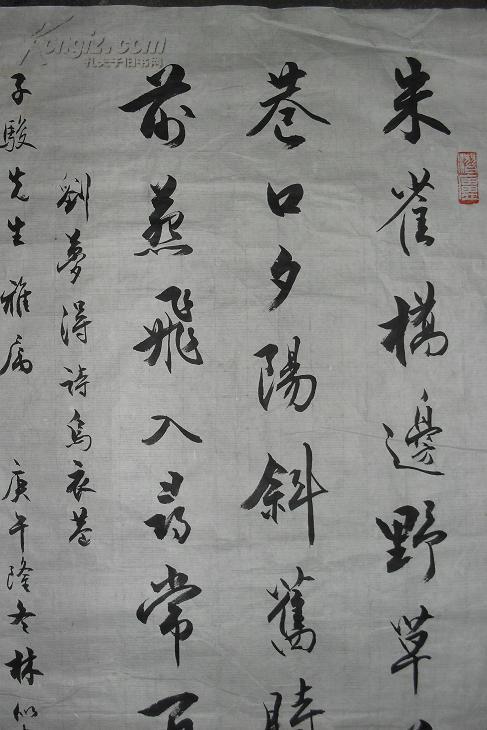 朱雀橋邊野草
巷口夕陽斜舊時
前燕飛入尋常百
劉夢得詩烏衣巷
子駿先生雅属 庚午隆冬林仙
Kongfz.com
孔夫子旧书网